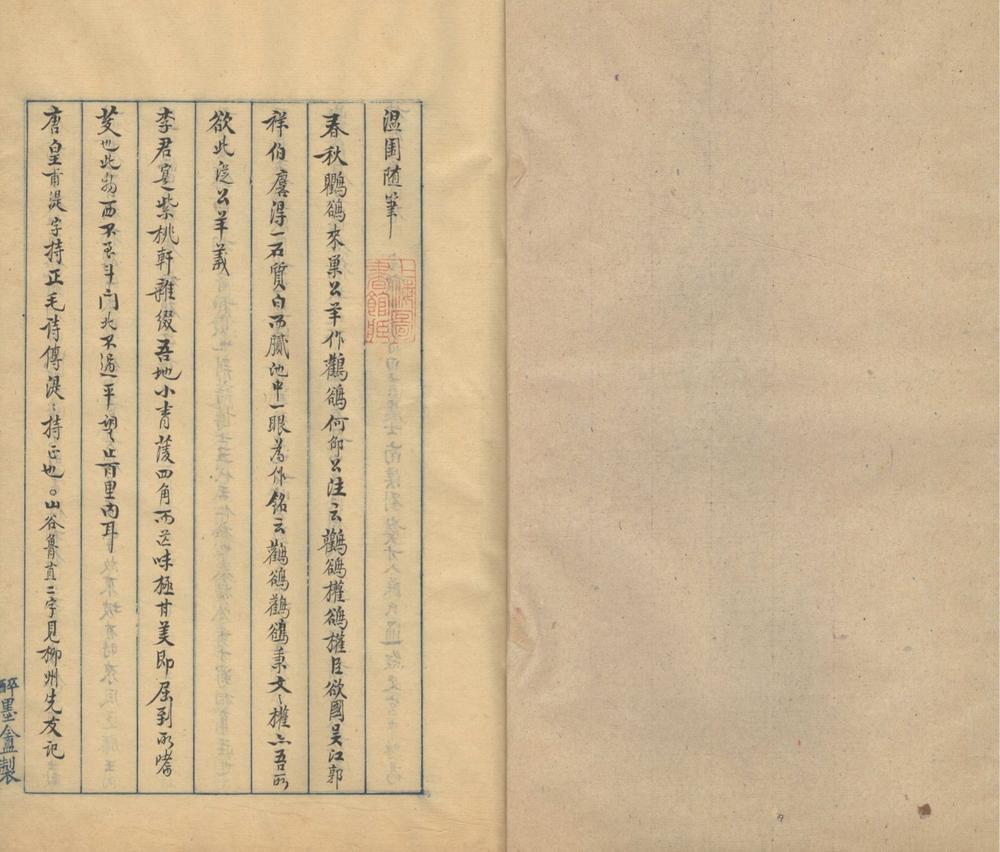 温園随筆
春秋鸜鵒來巢公羊作鸛鵒何卲公注云鸛鵒權鵒權臣欲國吴江郭
祥伯麐淂一石質白而膩池中一眼為作銘云鸛鵒鸛鵒秉文〻權亦吾所
欲此從公羊義
李君寔紫桃軒雜綴吾地小青菱四角而逆味極甘美即屈到所嗜
芰也此物西不至斗门北不過平望止百里內耳
唐皇甫湜字持正毛诗傳湜〻持正也○山谷魯直二字見柳州先友记
上海圖
書館藏
醉墨盦製